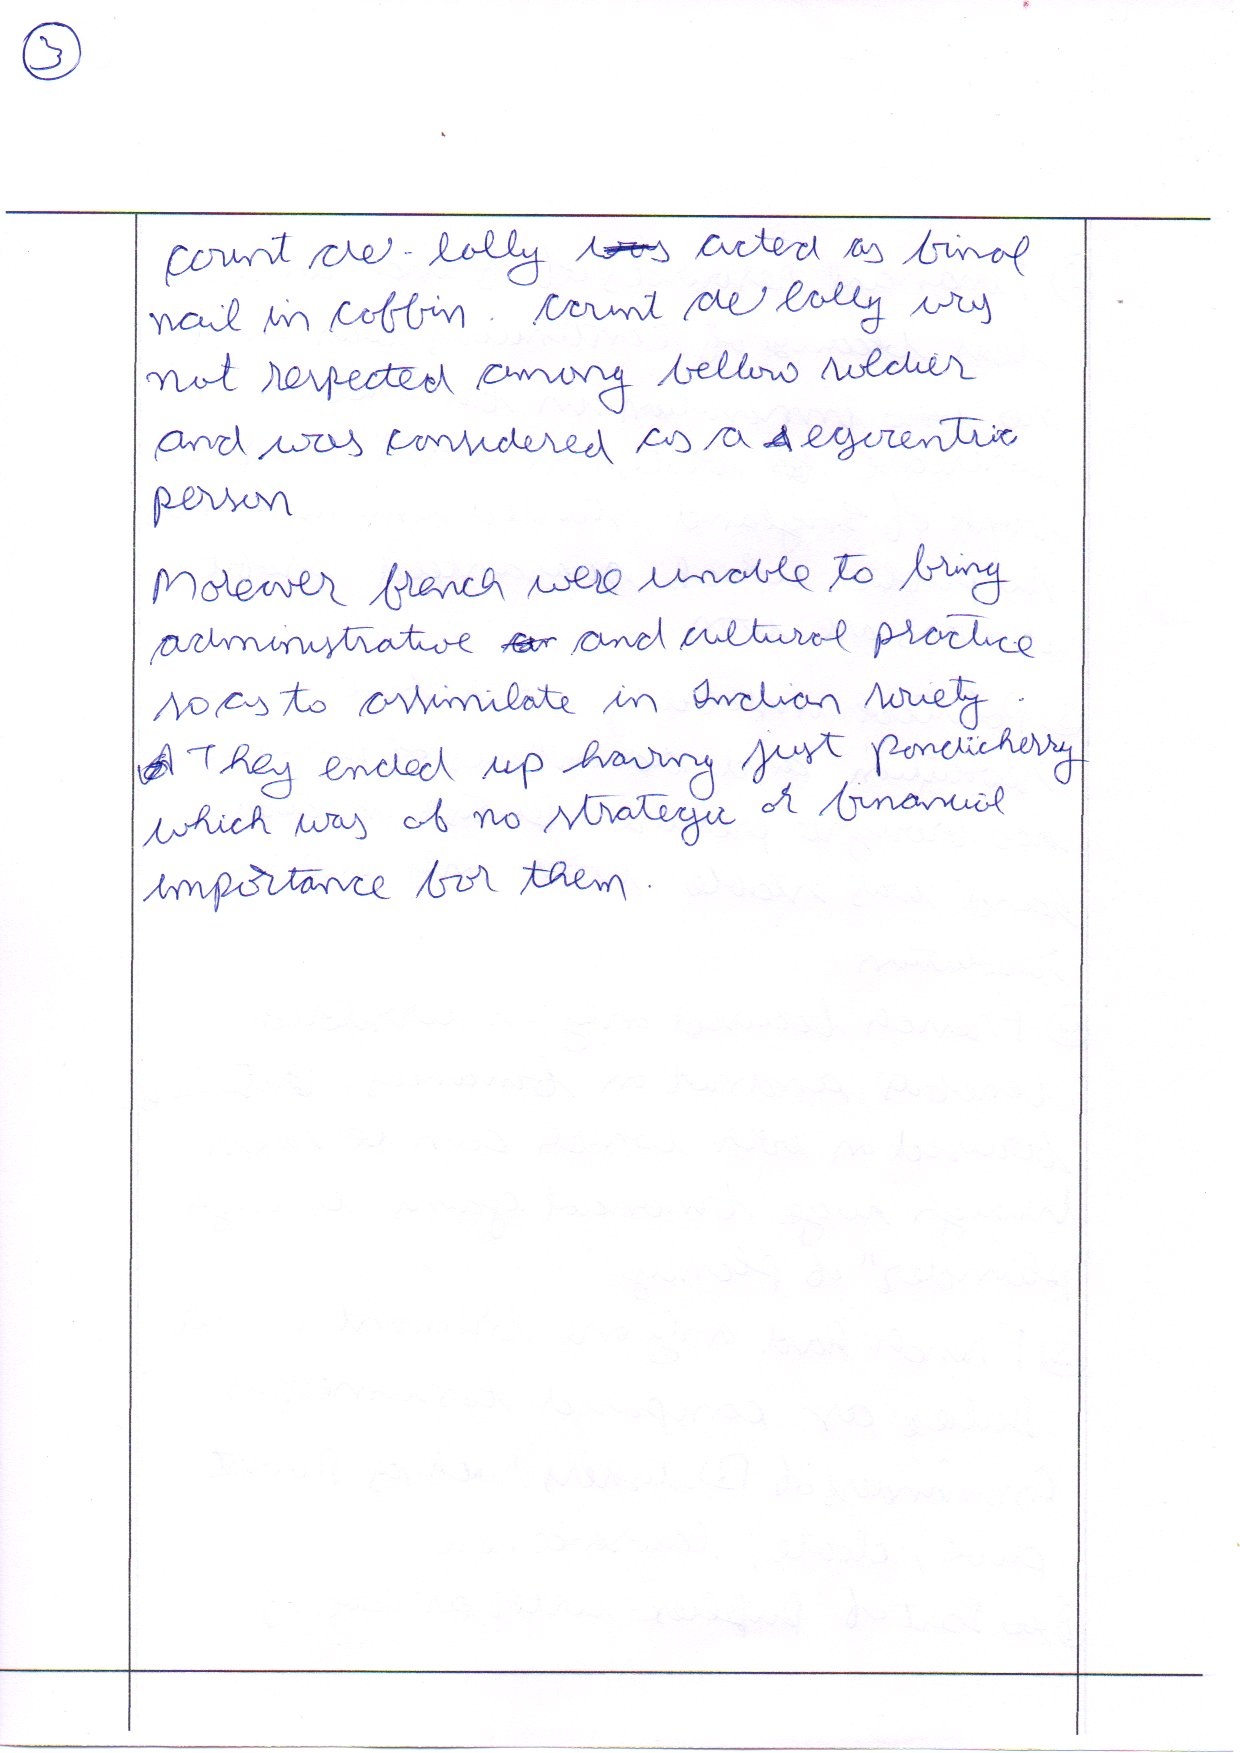 3
count de-lolly was acted as final
nail in coffin. count de lolly wrs
not respected among fellow soldier
and was considered as a egocentric
person
Moreover french were unable to bring
administrative ar and cultural practice
so as to assimilate in Indian society.
They ended up having just pondicherry
which was of no strategic or financial
importance for them.